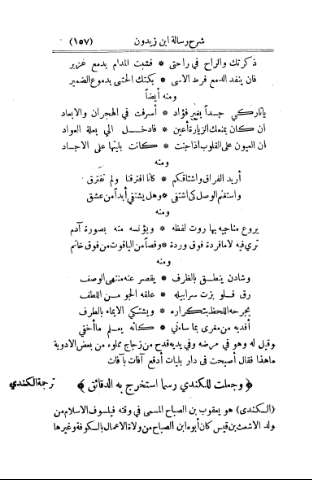 شرح رسالة ابن زيدون (١٥٧)
ذكرتك والراح في راحتي * فشبت المدام بدمع غزير
فان ينفد الدمع فرط الاسى * بكتك الحشى بدموع الضمير
ومنه أيضاً
ياتاركي جسداً بغير فؤاد * أسرفت في الهجران والابعاد
ان كان يمنعك الزيارة أعين * فادخل الي بعلة العواد
ان العيون على القلوب اذا جنت * كانت بليتها على الاجساد
ومنه
أريد الفراق واشتاقكم * كانا افترقنا ولم نفترق
واستغنم الوصل كي اشتفي * وهل يشتفي أبداً من عشق
ومنه
يروع مناجيه بها روت لفظه * ويؤنسه منه بصورة آدم
ترى فيه لاما فردة فوق وردة * وفصاً من الياقوت من فوق خاتم
ومنه
وشادن ينطق بالظرف * يقصر عنه منتهى الوصف
رق فلو بزت سرابيله * علقه الجو من اللطف
يجرحه اللحظ بتكراره * ويشتكي الايماء بالطرف
أفديه من مغرى بما ساءني * كأنه يعلم ما أخفي
وقيل له وهو في مرضه وفي يده قدح من زجاج مملوء من بعض الادوية
ما هذا فقال أصبحت في دار بليات أدفع آفات بآفات
﴿ وجعلت للكندي رسما استخرج به الدقائق ﴾ ترجمة الكندي
(الكندي) هو يعقوب بن الصباح المسمى في وقته فيلسوف الاسلام من
ولد الاشعث بن قيس كان أبوه ابن الصباح من ولاة الاعمال بالكوفة وغيرها